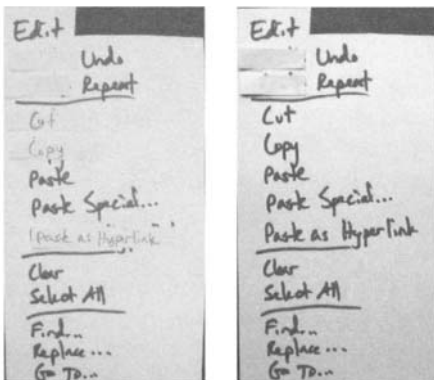 Edit
Undo
Repeat
Cut
Copy
Paste
Paste Special...
Paste as Hyperlink
Clear
Select All
Find...
Replace...
Go To...
Edit
Undo
Repeat
Cut
Copy
Paste
Paste Special...
Paste as Hyperlink
Clear
Select All
Find...
Replace...
Go To...